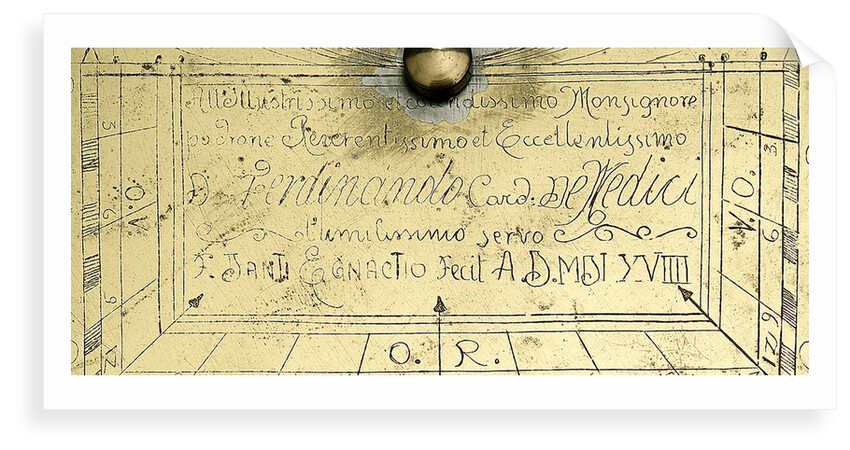 All Illustrissimo et colendissimo Monsignore
padrone Reverentissimo et Eccellentissimo
D. Ferdinando Card: De Medici
l'umilissimo servo
F. DANTI EGNACTIO Fecit A.D. MDLXVIIII
V.O.
V.O.
3
6
9
12
3
6
9
12
O. R.